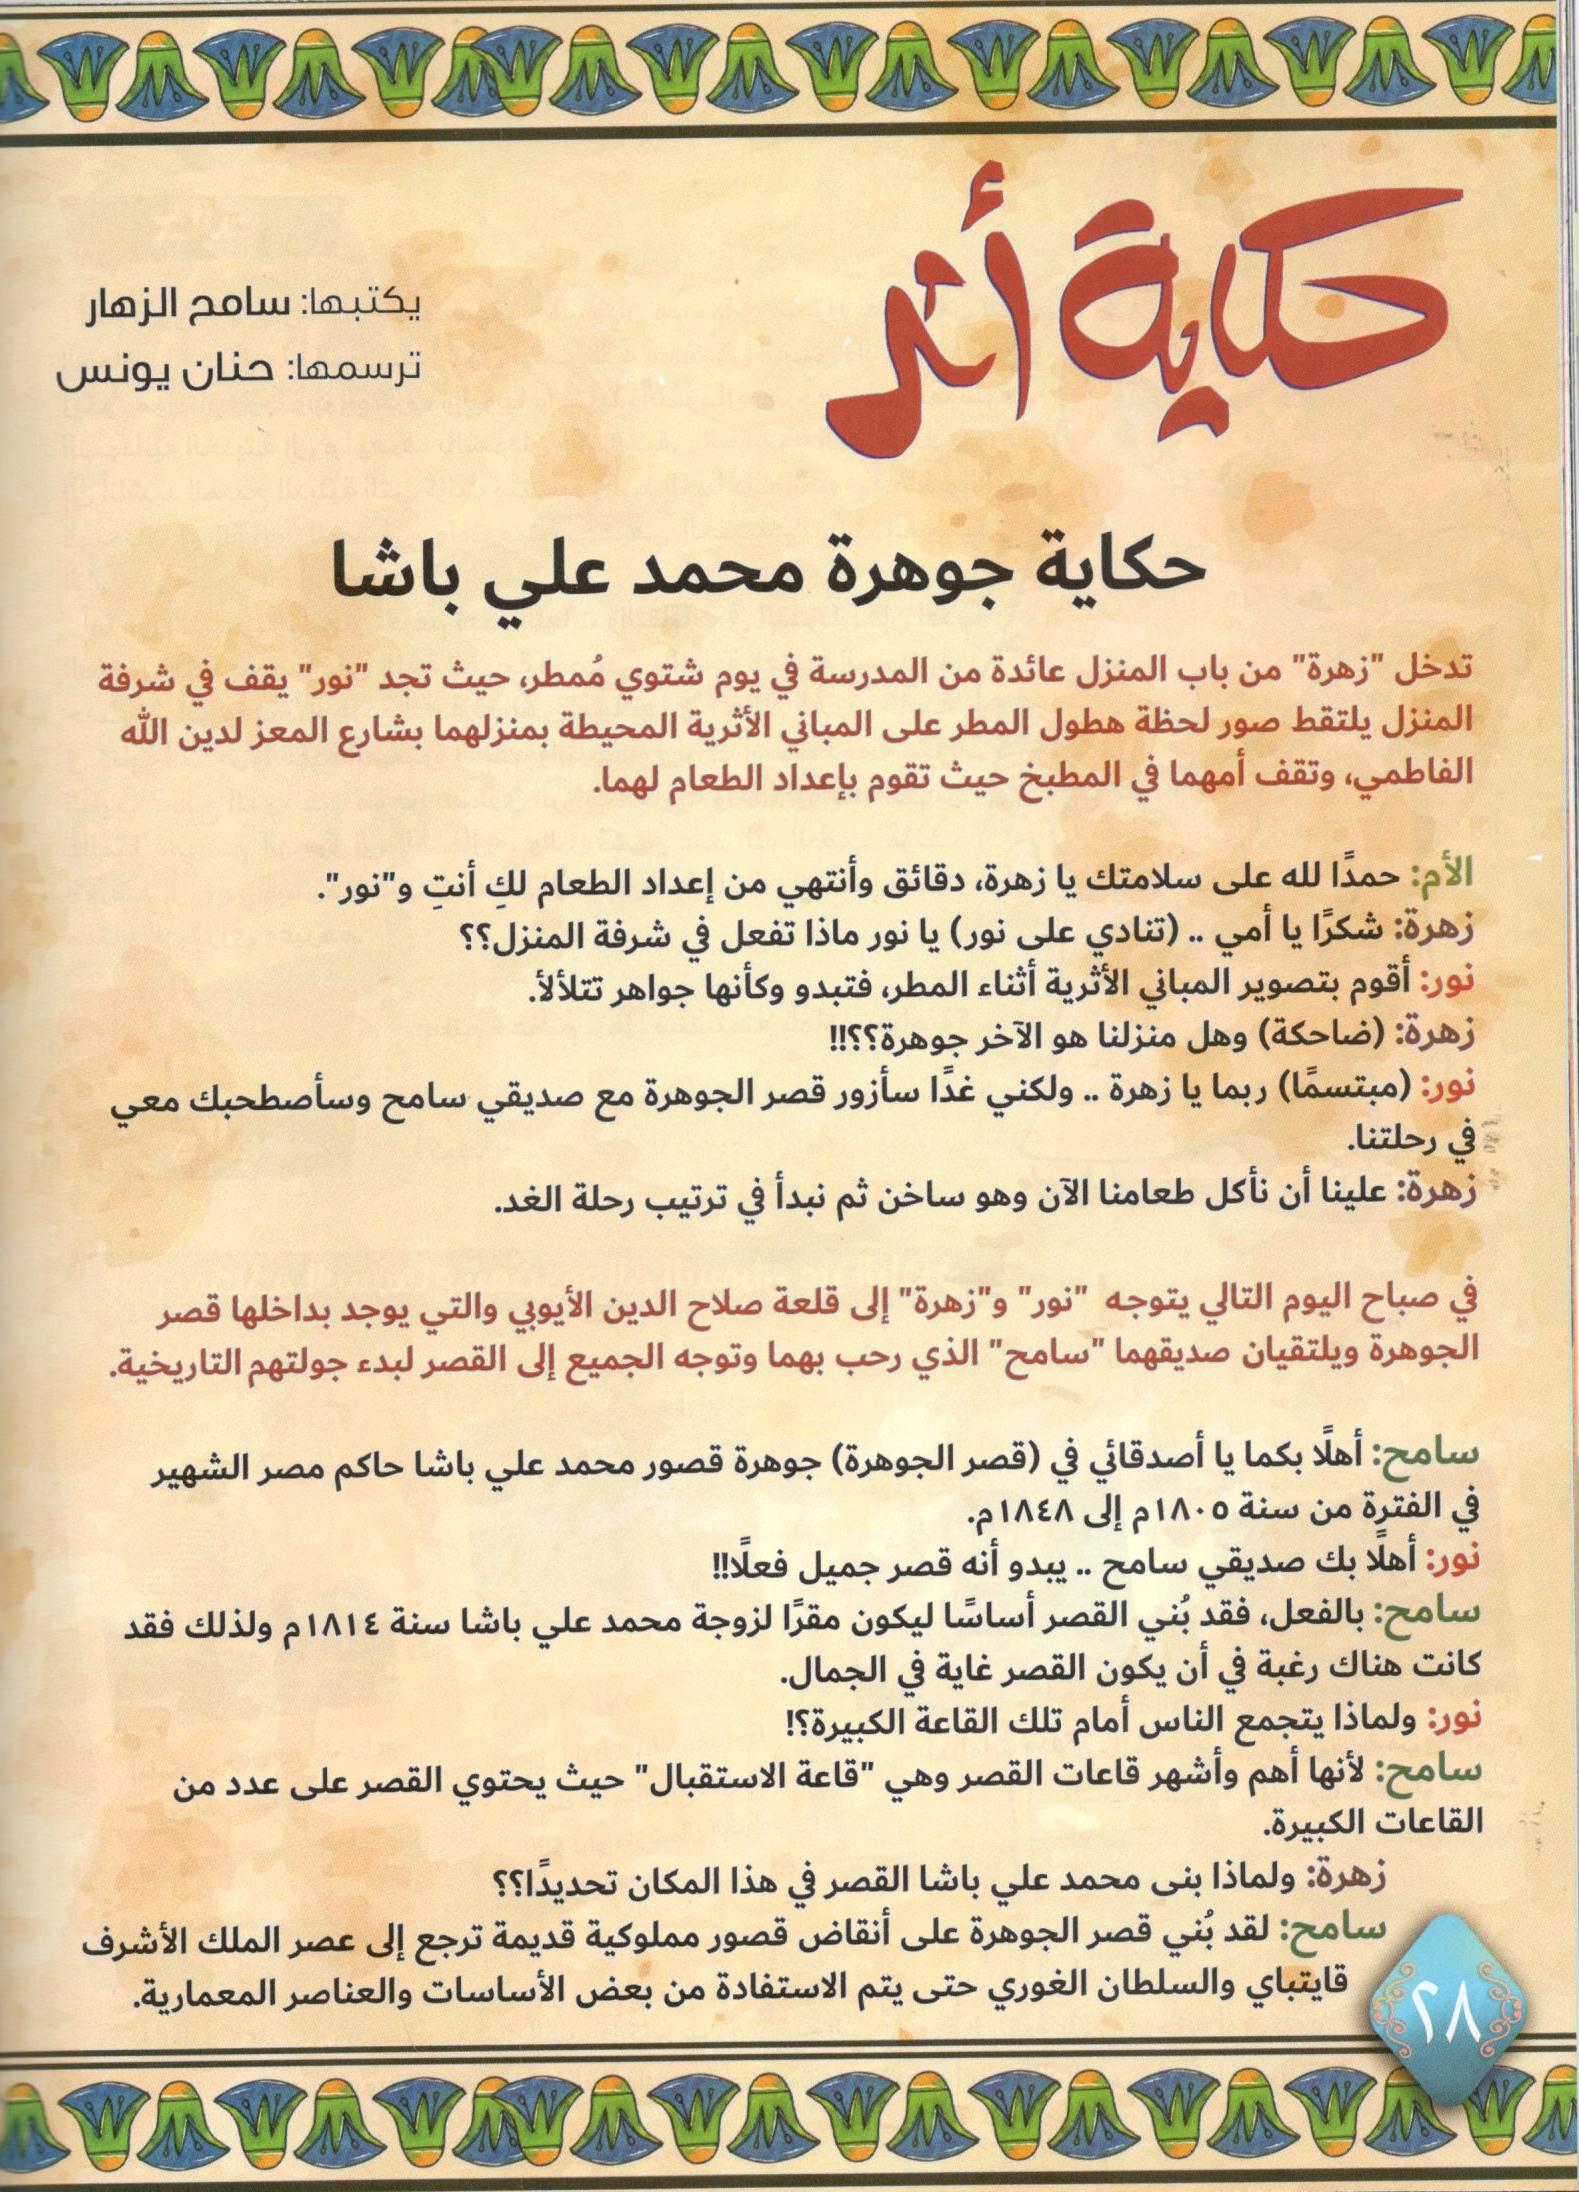 حكاية أثر
يكتبها: سامح الزهار
ترسمها: حنان يونس
حكاية جوهرة محمد علي باشا
تدخل "زهرة" من باب المنزل عائدة من المدرسة في يوم شتوي مُمطر، حيث تجد "نور" يقف في شرفة
المنزل يلتقط صور لحظة هطول المطر على المباني الأثرية المحيطة بمنزلهما بشارع المعز لدين الله
الفاطمي، وتقف أمهما في المطبخ حيث تقوم بإعداد الطعام لهما.
الأم: حمدًا لله على سلامتك يا زهرة، دقائق وأنتهي من إعداد الطعام لكِ أنتِ و"نور".
زهرة: شكرًا يا أمي .. (تنادي على نور) يا نور ماذا تفعل في شرفة المنزل؟؟
نور: أقوم بتصوير المباني الأثرية أثناء المطر، فتبدو وكأنها جواهر تتلألأ.
زهرة: (ضاحكة) وهل منزلنا هو الآخر جوهرة؟؟!!
نور: (مبتسمًا) ربما يا زهرة .. ولكني غدًا سأزور قصر الجوهرة مع صديقي سامح وسأصطحبك معي
في رحلتنا.
زهرة: علينا أن نأكل طعامنا الآن وهو ساخن ثم نبدأ في ترتيب رحلة الغد.
في صباح اليوم التالي يتوجه "نور" و"زهرة" إلى قلعة صلاح الدين الأيوبي والتي يوجد بداخلها قصر
الجوهرة ويلتقيان صديقهما "سامح" الذي رحب بهما وتوجه الجميع إلى القصر لبدء جولتهم التاريخية.
سامح: أهلًا بكما يا أصدقائي في (قصر الجوهرة) جوهرة قصور محمد علي باشا حاكم مصر الشهير
في الفترة من سنة ١٨٠٥م إلى ١٨٤٨م.
نور: أهلًا بك صديقي سامح .. يبدو أنه قصر جميل فعلًا!!
سامح: بالفعل، فقد بُني القصر أساسًا ليكون مقرًا لزوجة محمد علي باشا سنة ١٨١٤م ولذلك فقد
كانت هناك رغبة في أن يكون القصر غاية في الجمال.
نور: ولماذا يتجمع الناس أمام تلك القاعة الكبيرة؟!
سامح: لأنها أهم وأشهر قاعات القصر وهي "قاعة الاستقبال" حيث يحتوي القصر على عدد من
القاعات الكبيرة.
زهرة: ولماذا بنى محمد علي باشا القصر في هذا المكان تحديدًا؟؟
سامح: لقد بُني قصر الجوهرة على أنقاض قصور مملوكية قديمة ترجع إلى عصر الملك الأشرف
قايتباي والسلطان الغوري حتى يتم الاستفادة من بعض الأساسات والعناصر المعمارية.
٢٨